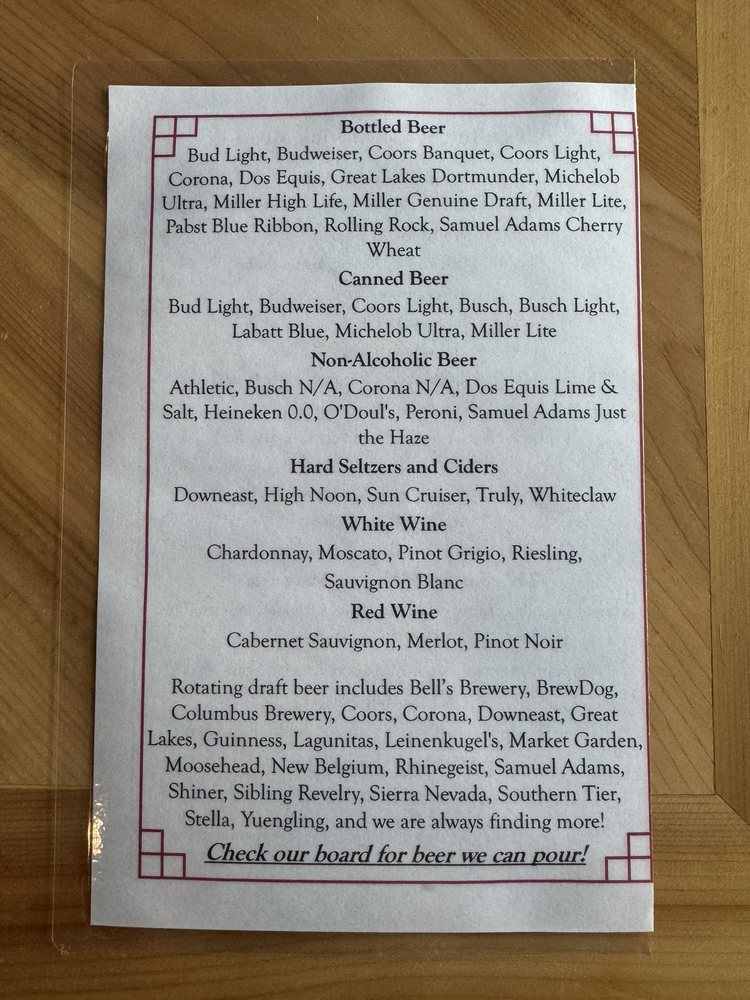 Bottled Beer
Bud Light, Budweiser, Coors Banquet, Coors Light,
Corona, Dos Equis, Great Lakes Dortmunder, Michelob
Ultra, Miller High Life, Miller Genuine Draft, Miller Lite,
Pabst Blue Ribbon, Rolling Rock, Samuel Adams Cherry
Wheat
Canned Beer
Bud Light, Budweiser, Coors Light, Busch, Busch Light,
Labatt Blue, Michelob Ultra, Miller Lite
Non-Alcoholic Beer
Athletic, Busch N/A, Corona N/A, Dos Equis Lime &
Salt, Heineken 0.0, O'Doul's, Peroni, Samuel Adams Just
the Haze
Hard Seltzers and Ciders
Downeast, High Noon, Sun Cruiser, Truly, Whiteclaw
White Wine
Chardonnay, Moscato, Pinot Grigio, Riesling,
Sauvignon Blanc
Red Wine
Cabernet Sauvignon, Merlot, Pinot Noir
Rotating draft beer includes Bell's Brewery, BrewDog,
Columbus Brewery, Coors, Corona, Downeast, Great
Lakes, Guinness, Lagunitas, Leinenkugel's, Market Garden,
Moosehead, New Belgium, Rhinegeist, Samuel Adams,
Shiner, Sibling Revelry, Sierra Nevada, Southern Tier,
Stella, Yuengling, and we are always finding more!
Check our board for beer we can pour!